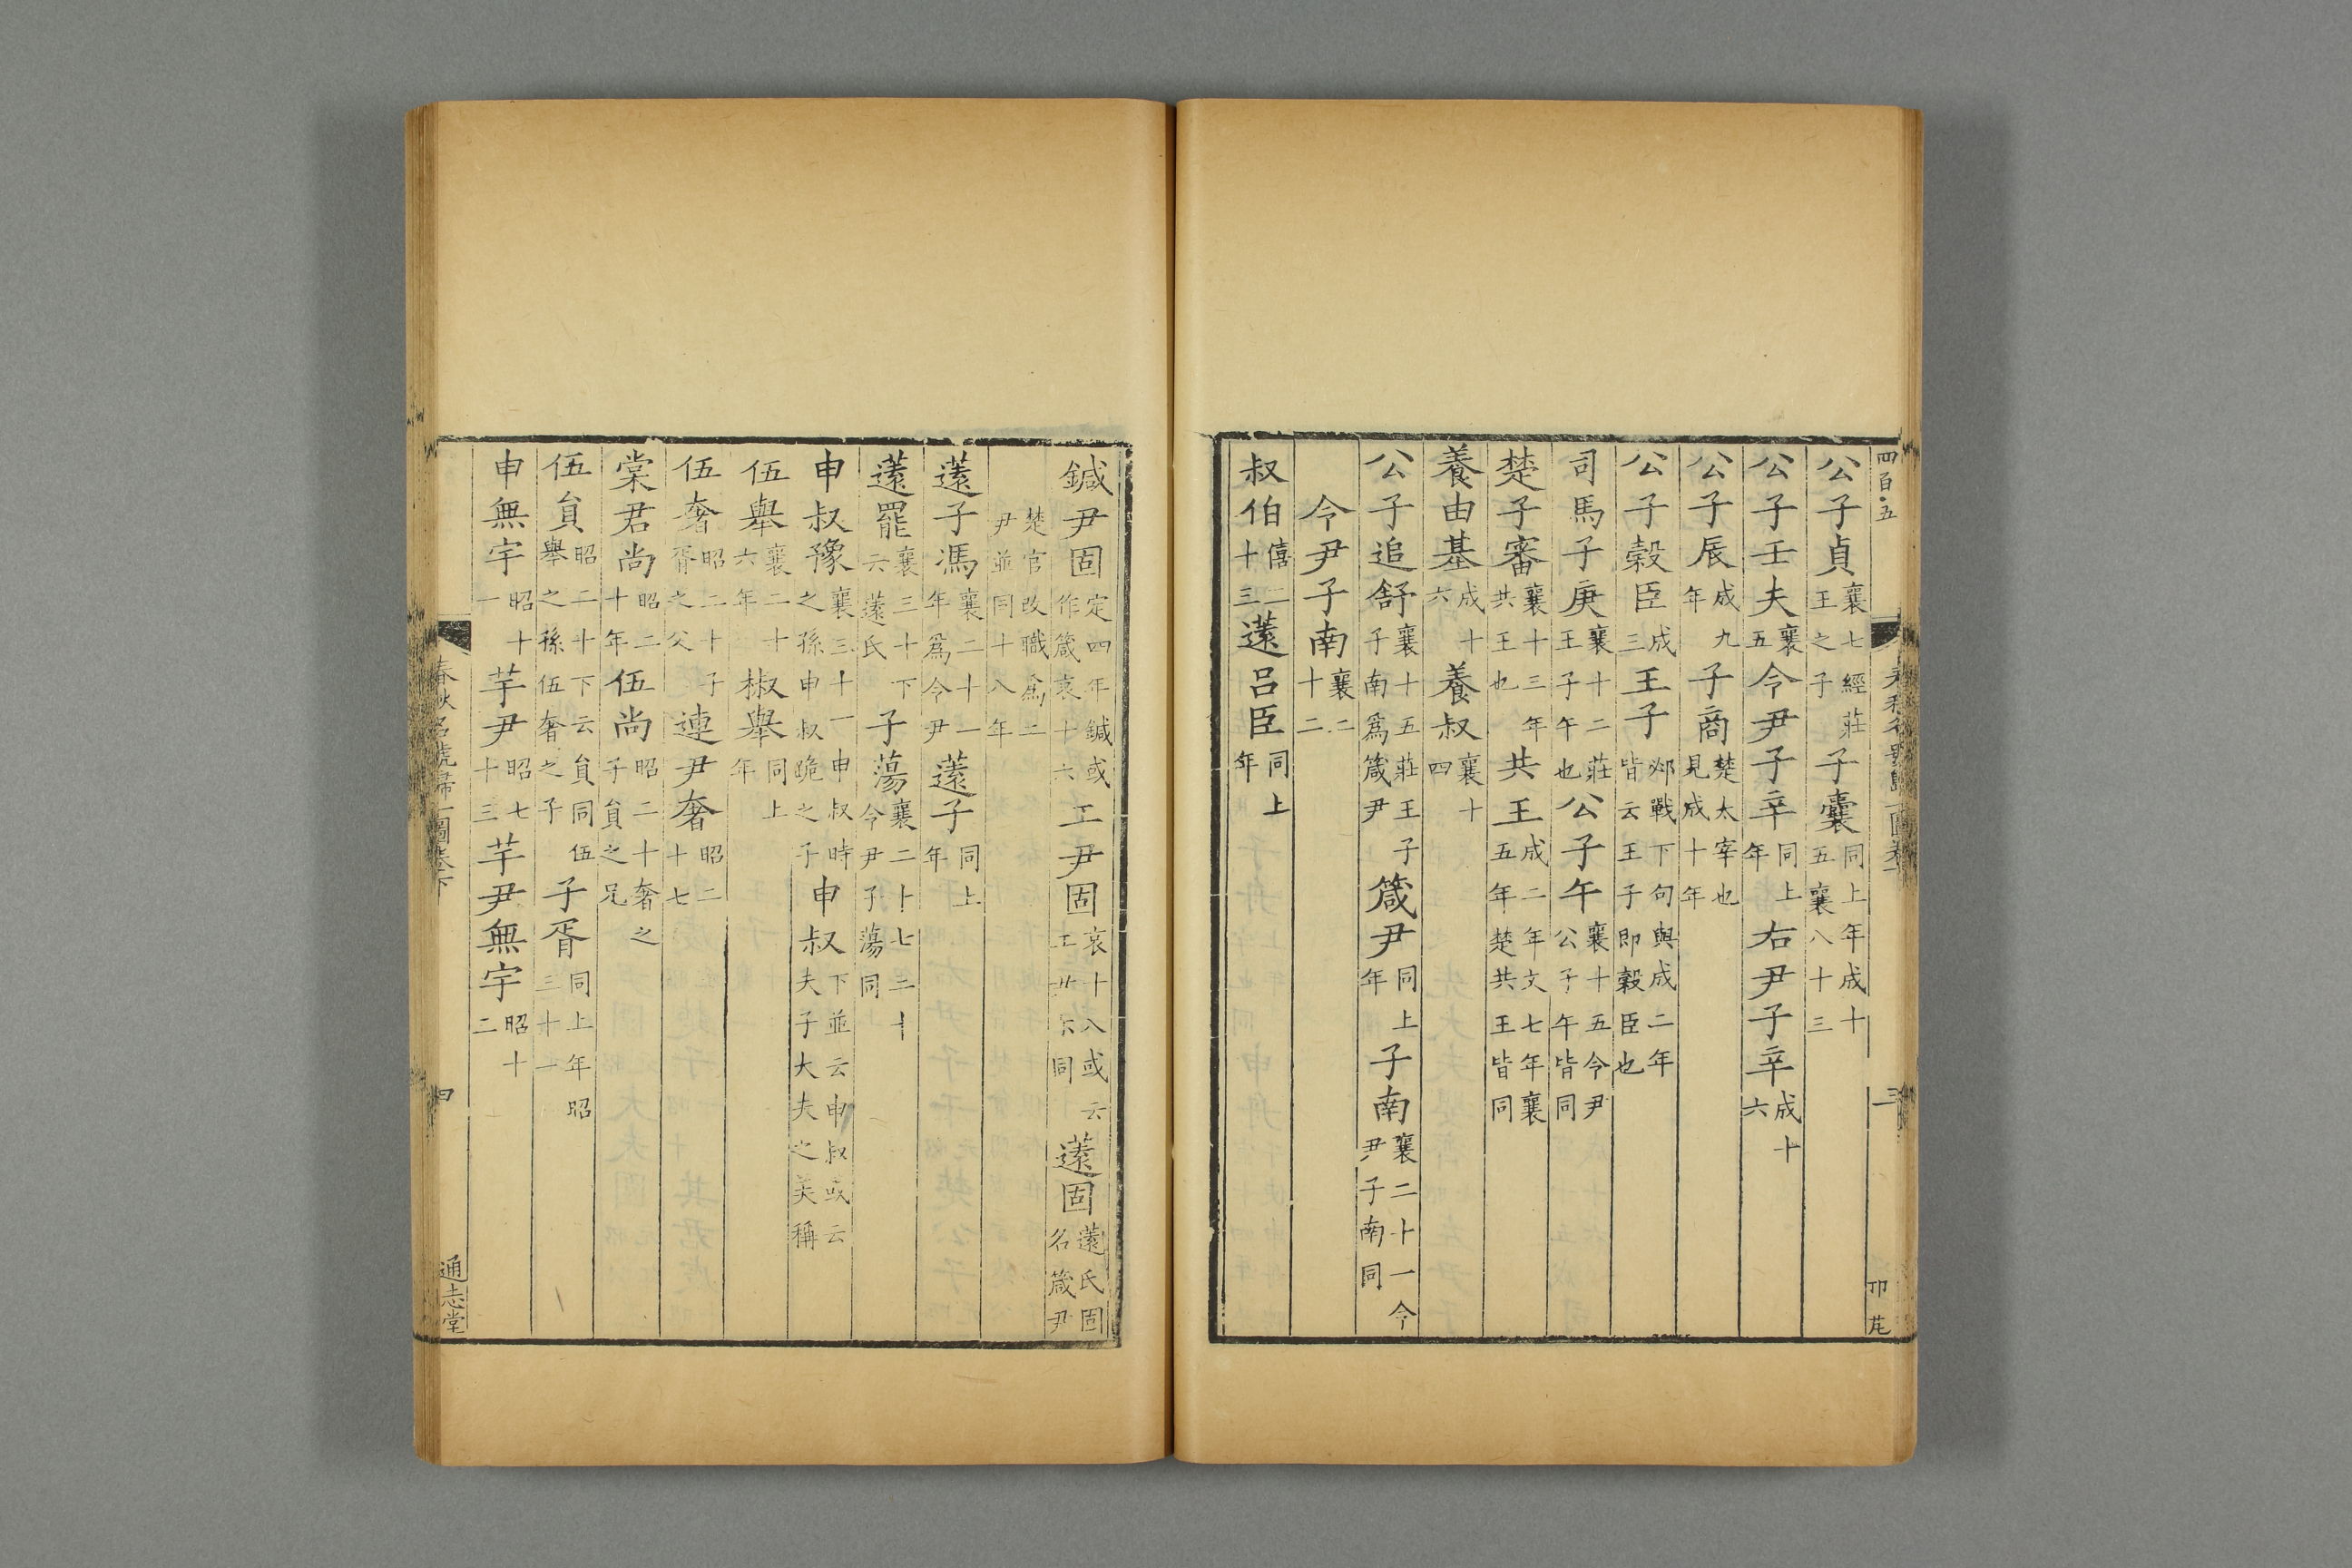 四百五
三
公子貞襄七經莊王之子子囊同上年成十五襄八十三
公子壬夫襄五令尹子辛同上年右尹子辛成十六
公子辰成九年子商楚太宰也見成十年
公子穀臣成三王子邲戰下句與成二年皆云王子即穀臣也
司馬子庚襄十二莊王子午也公子午襄十五令尹公子午皆同
楚子審襄十三年共王也共王成二年文七年襄五年楚共王皆同
養由基成十六養叔襄十四
公子追舒襄十五莊王子子南爲箴尹箴尹同上年子南襄二十一令尹子南同
令尹子南襄二十二
叔伯僖二十三薳呂臣同上年
鍼尹固定四年鍼或作箴哀十六工尹固哀十八或云工尹同薳固薳氏固名箴尹
楚官改職爲二尹並同十八年
薳子馮襄二十一年爲令尹薳子同上年
薳罷襄三十下六薳氏子蕩襄二十七三十令尹子蕩同
申叔豫襄三十一申叔時之孫申叔跪之子申叔下並云申叔或云夫子大夫之美稱
伍舉襄二十六年椒舉同上年
伍奢昭二十子胥之父連尹奢昭二十七
棠君尚昭二十年伍尚昭二十奢之子員之兄
伍員昭二十下云員同伍舉之孫伍奢之子子胥同上年昭三十一
申無宇昭十一芋尹昭七十三芋尹無宇昭十二
春秋名號歸一圖卷下
四
通志堂